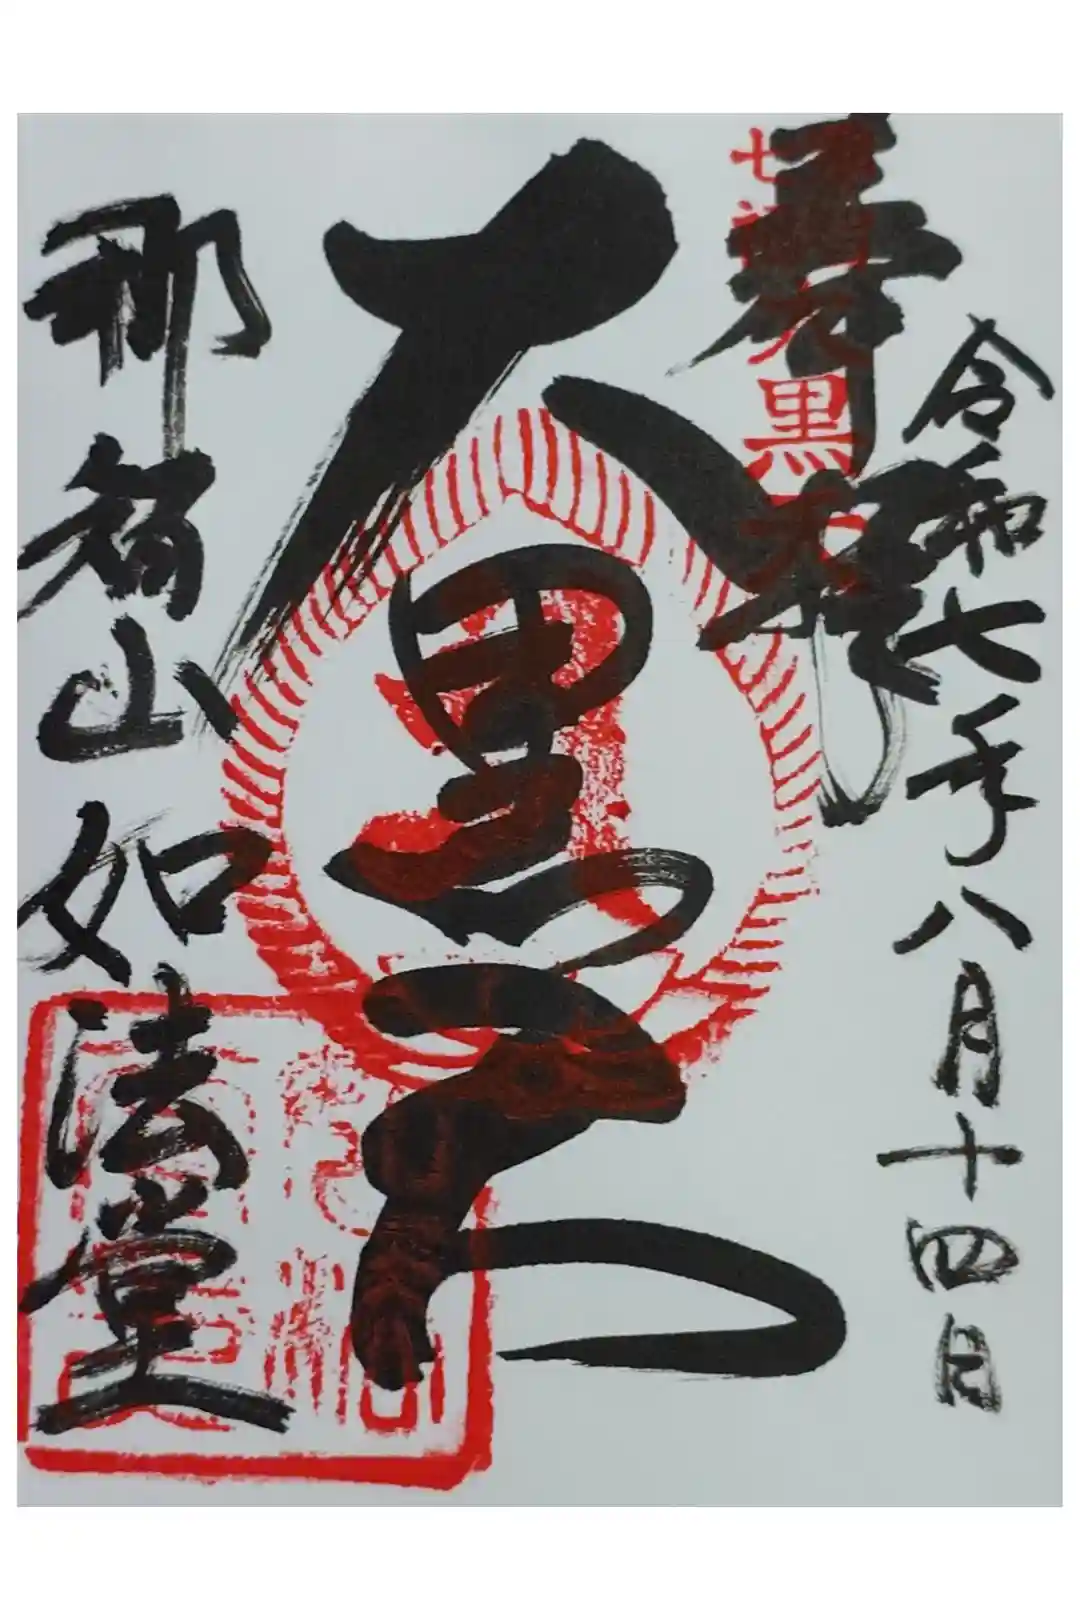 令和七年八月十四日
奉拝
七福大黒天
大黒天
那智山如法堂